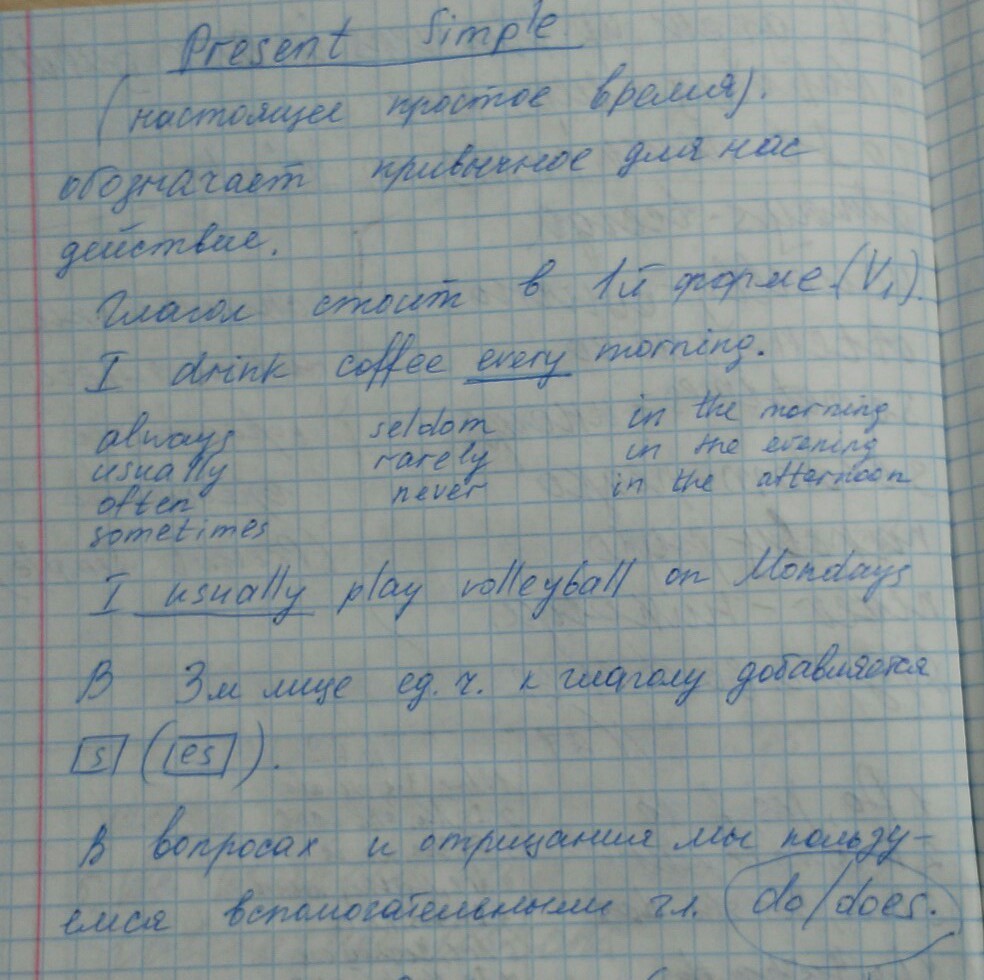 Present Simple
(настоящее простое время).
обозначает привычное для нас
действие.
Глагол стоит в 1й форме (V1).
I drink coffee every morning.
always seldom in the morning
usually rarely in the evening
often never in the afternoon
sometimes
I usually play volleyball on Mondays
В 3м лице ед. ч. к глаголу добавляется
s (es).
В вопросах и отрицания мы пользу-
емся вспомогательными гл. do/does.